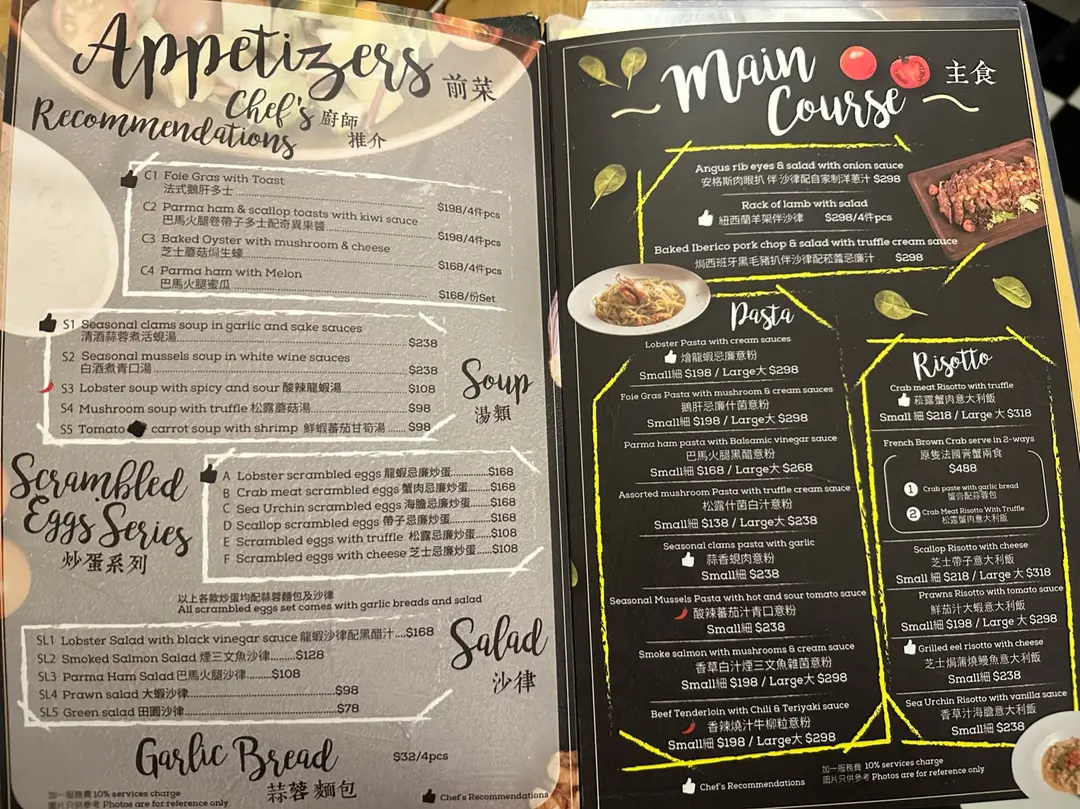 Appetizers 前菜
Chef's 廚師
Recommendations 推介
C1 Foie Gras with Toast
法式鵝肝多士 $198/4件pcs
C2 Parma ham & scallop toasts with kiwi sauce
巴馬火腿卷帶子多士配奇異果醬 $198/4件pcs
C3 Baked Oyster with mushroom & cheese
芝士蘑菇焗生蠔 $168/4件pcs
C4 Parma ham with Melon
巴馬火腿蜜瓜 $168/份Set
S1 Seasonal clams soup in garlic and sake sauces
清酒蒜蓉煮活蜆湯 $238
S2 Seasonal mussels soup in white wine sauces
白酒煮青口湯 $238
S3 Lobster soup with spicy and sour 酸辣龍蝦湯 $108
S4 Mushroom soup with truffle 松露蘑菇湯 $98
S5 Tomato carrot soup with shrimp 鮮蝦蕃茄甘筍湯 $98
Soup
湯類
Scrambled
Eggs Series
炒蛋系列
A Lobster scrambled eggs 龍蝦忌廉炒蛋 $168
B Crab meat scrambled eggs 蟹肉忌廉炒蛋 $168
C Sea Urchin scrambled eggs 海膽忌廉炒蛋 $168
D Scallop scrambled eggs 帶子忌廉炒蛋 $168
E Scrambled eggs with truffle 松露忌廉炒蛋 $108
F Scrambled eggs with cheese 芝士忌廉炒蛋 $108
以上各款炒蛋均配蒜蓉麵包及沙律
All scrambled eggs set comes with garlic breads and salad
SL1 Lobster Salad with black vinegar sauce 龍蝦沙律配黑醋汁 $168
SL2 Smoked Salmon Salad 煙三文魚沙律 $128
SL3 Parma Ham Salad 巴馬火腿沙律 $108
SL4 Prawn salad 大蝦沙律 $98
SL5 Green salad 田園沙律 $78
Salad
沙律
Garlic Bread $32/4pcs
蒜蓉 麵包
加一服務費 10% services charge
圖片只供參考 Photos are for reference only
Chef's Recommendations
Main
Course 主食
Angus rib eyes & salad with onion sauce
安格斯肉眼扒 伴 沙律配自家制洋蔥汁 $298
Rack of lamb with salad
紐西蘭羊架伴沙律 $298/4件pcs
Baked Iberico pork chop & salad with truffle cream sauce
焗西班牙黑毛豬扒伴沙律配菘露忌廉汁 $298
Pasta
Lobster Pasta with cream sauces
燴龍蝦忌廉意粉
Small細 $198 / Large大 $298
Foie Gras Pasta with mushroom & cream sauces
鵝肝忌廉什菌意粉
Small細 $198 / Large大 $298
Parma ham pasta with Balsamic vinegar sauce
巴馬火腿黑醋意粉
Small細 $168 / Large大 $268
Assorted mushroom Pasta with truffle cream sauce
松露什菌白汁意粉
Small細 $138 / Large大 $238
Seasonal clams pasta with garlic
蒜香蜆肉意粉
Small細 $238
Seasonal Mussels Pasta with hot and sour tomato sauce
酸辣蕃茄汁青口意粉
Small細 $238
Smoke salmon with mushrooms & cream sauce
香草白汁煙三文魚雜菌意粉
Small細 $198 / Large大 $298
Beef Tenderloin with Chili & Teriyaki sauce
香辣燒汁牛柳粒意粉
Small細 $198 / Large大 $298
Chef's Recommendations
Risotto
Crab meat Risotto with truffle
菘露蟹肉意大利飯
Small 細 $218 / Large 大 $318
French Brown Crab serve in 2-ways
原隻法國膏蟹兩食
$488
1 Crab paste with garlic bread
蟹膏配蒜蓉包
2 Crab Meat Risotto With Truffle
松露蟹肉意大利飯
Scallop Risotto with cheese
芝士帶子意大利飯
Small細 $218 / Large 大 $318
Prawns Risotto with tomato sauce
鮮茄汁大蝦意大利飯
Small細 $198 / Large 大 $298
Grilled eel risotto with cheese
芝士焗蒲燒鰻魚意大利飯
Small細 $238
Sea Urchin Risotto with vanilla sauce
香草汁海膽意大利飯
Small細 $238
加一服務費 10% services charge
圖片只供參考 Photos are for reference only